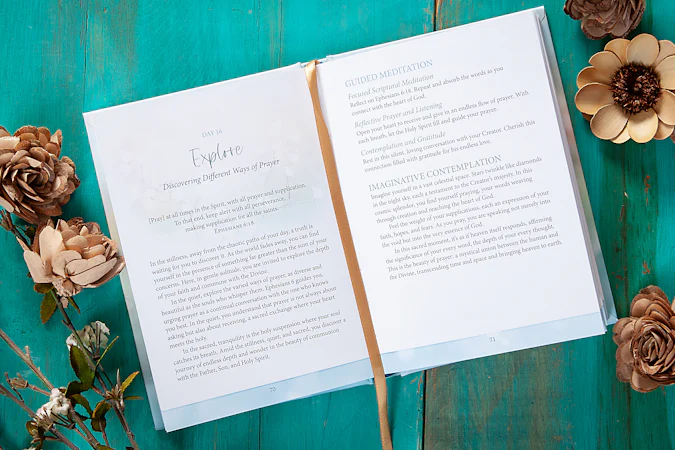 DAY 16
Explore
Discovering Different Ways of Prayer
[Pray] at all times in the Spirit, with all prayer and supplication.
To that end, keep alert with all perseverance,
making supplication for all the saints.
Ephesians 6:18
In the stillness, away from the chaotic paths of your day, a truth is
waiting for you to discover it. As the world fades away, you can find
yourself in the presence of something far greater than the sum of your
concerns. Here, in gentle solitude, you are invited to explore the depth
of your faith and commune with the Divine.
In the quiet, explore the varied ways of prayer, as diverse and
beautiful as the souls who whisper them. Ephesians 6 guides you,
urging prayer as a continual conversation with the one who knows
you best. In the quiet, you understand that prayer is not always about
asking but also about receiving, a sacred exchange where your heart
meets the holy.
In the sacred, tranquility is the holy suspension where your soul
catches its breath. Amid the stillness, quiet, and sacred, you discover a
journey of endless depth and wonder in the beauty of communion
with the Father, Son, and Holy Spirit.
70
GUIDED MEDITATION
Focused Scriptural Meditation
Reflect on Ephesians 6:18. Repeat and absorb the words as you
connect with the heart of God.
Reflective Prayer and Listening
Open your heart to receive and give in an endless flow of prayer. With
each breath, let the Holy Spirit fill and guide your prayer.
Contemplation and Gratitude
Rest in this silent, loving conversation with your Creator. Cherish this
connection filled with gratitude for his endless love.
IMAGINATIVE CONTEMPLATION
Imagine yourself in a vast celestial space. Stars twinkle like diamonds
in the night sky, each a testament to the Creator's majesty. In this
cosmic splendor, you find yourself praying, your words weaving
through creation and reaching the heart of God.
Feel the weight of your supplications, each an expression of your
faith, hopes, and fears. As you pray, you are speaking not merely into
the void but into the very essence of God.
In this sacred moment, it's as if heaven itself responds, affirming
the significance of your every word, the depth of your every thought.
This is the beauty of prayer: a mystical union between the human and
the Divine, transcending time and space and bringing heaven to earth.
71